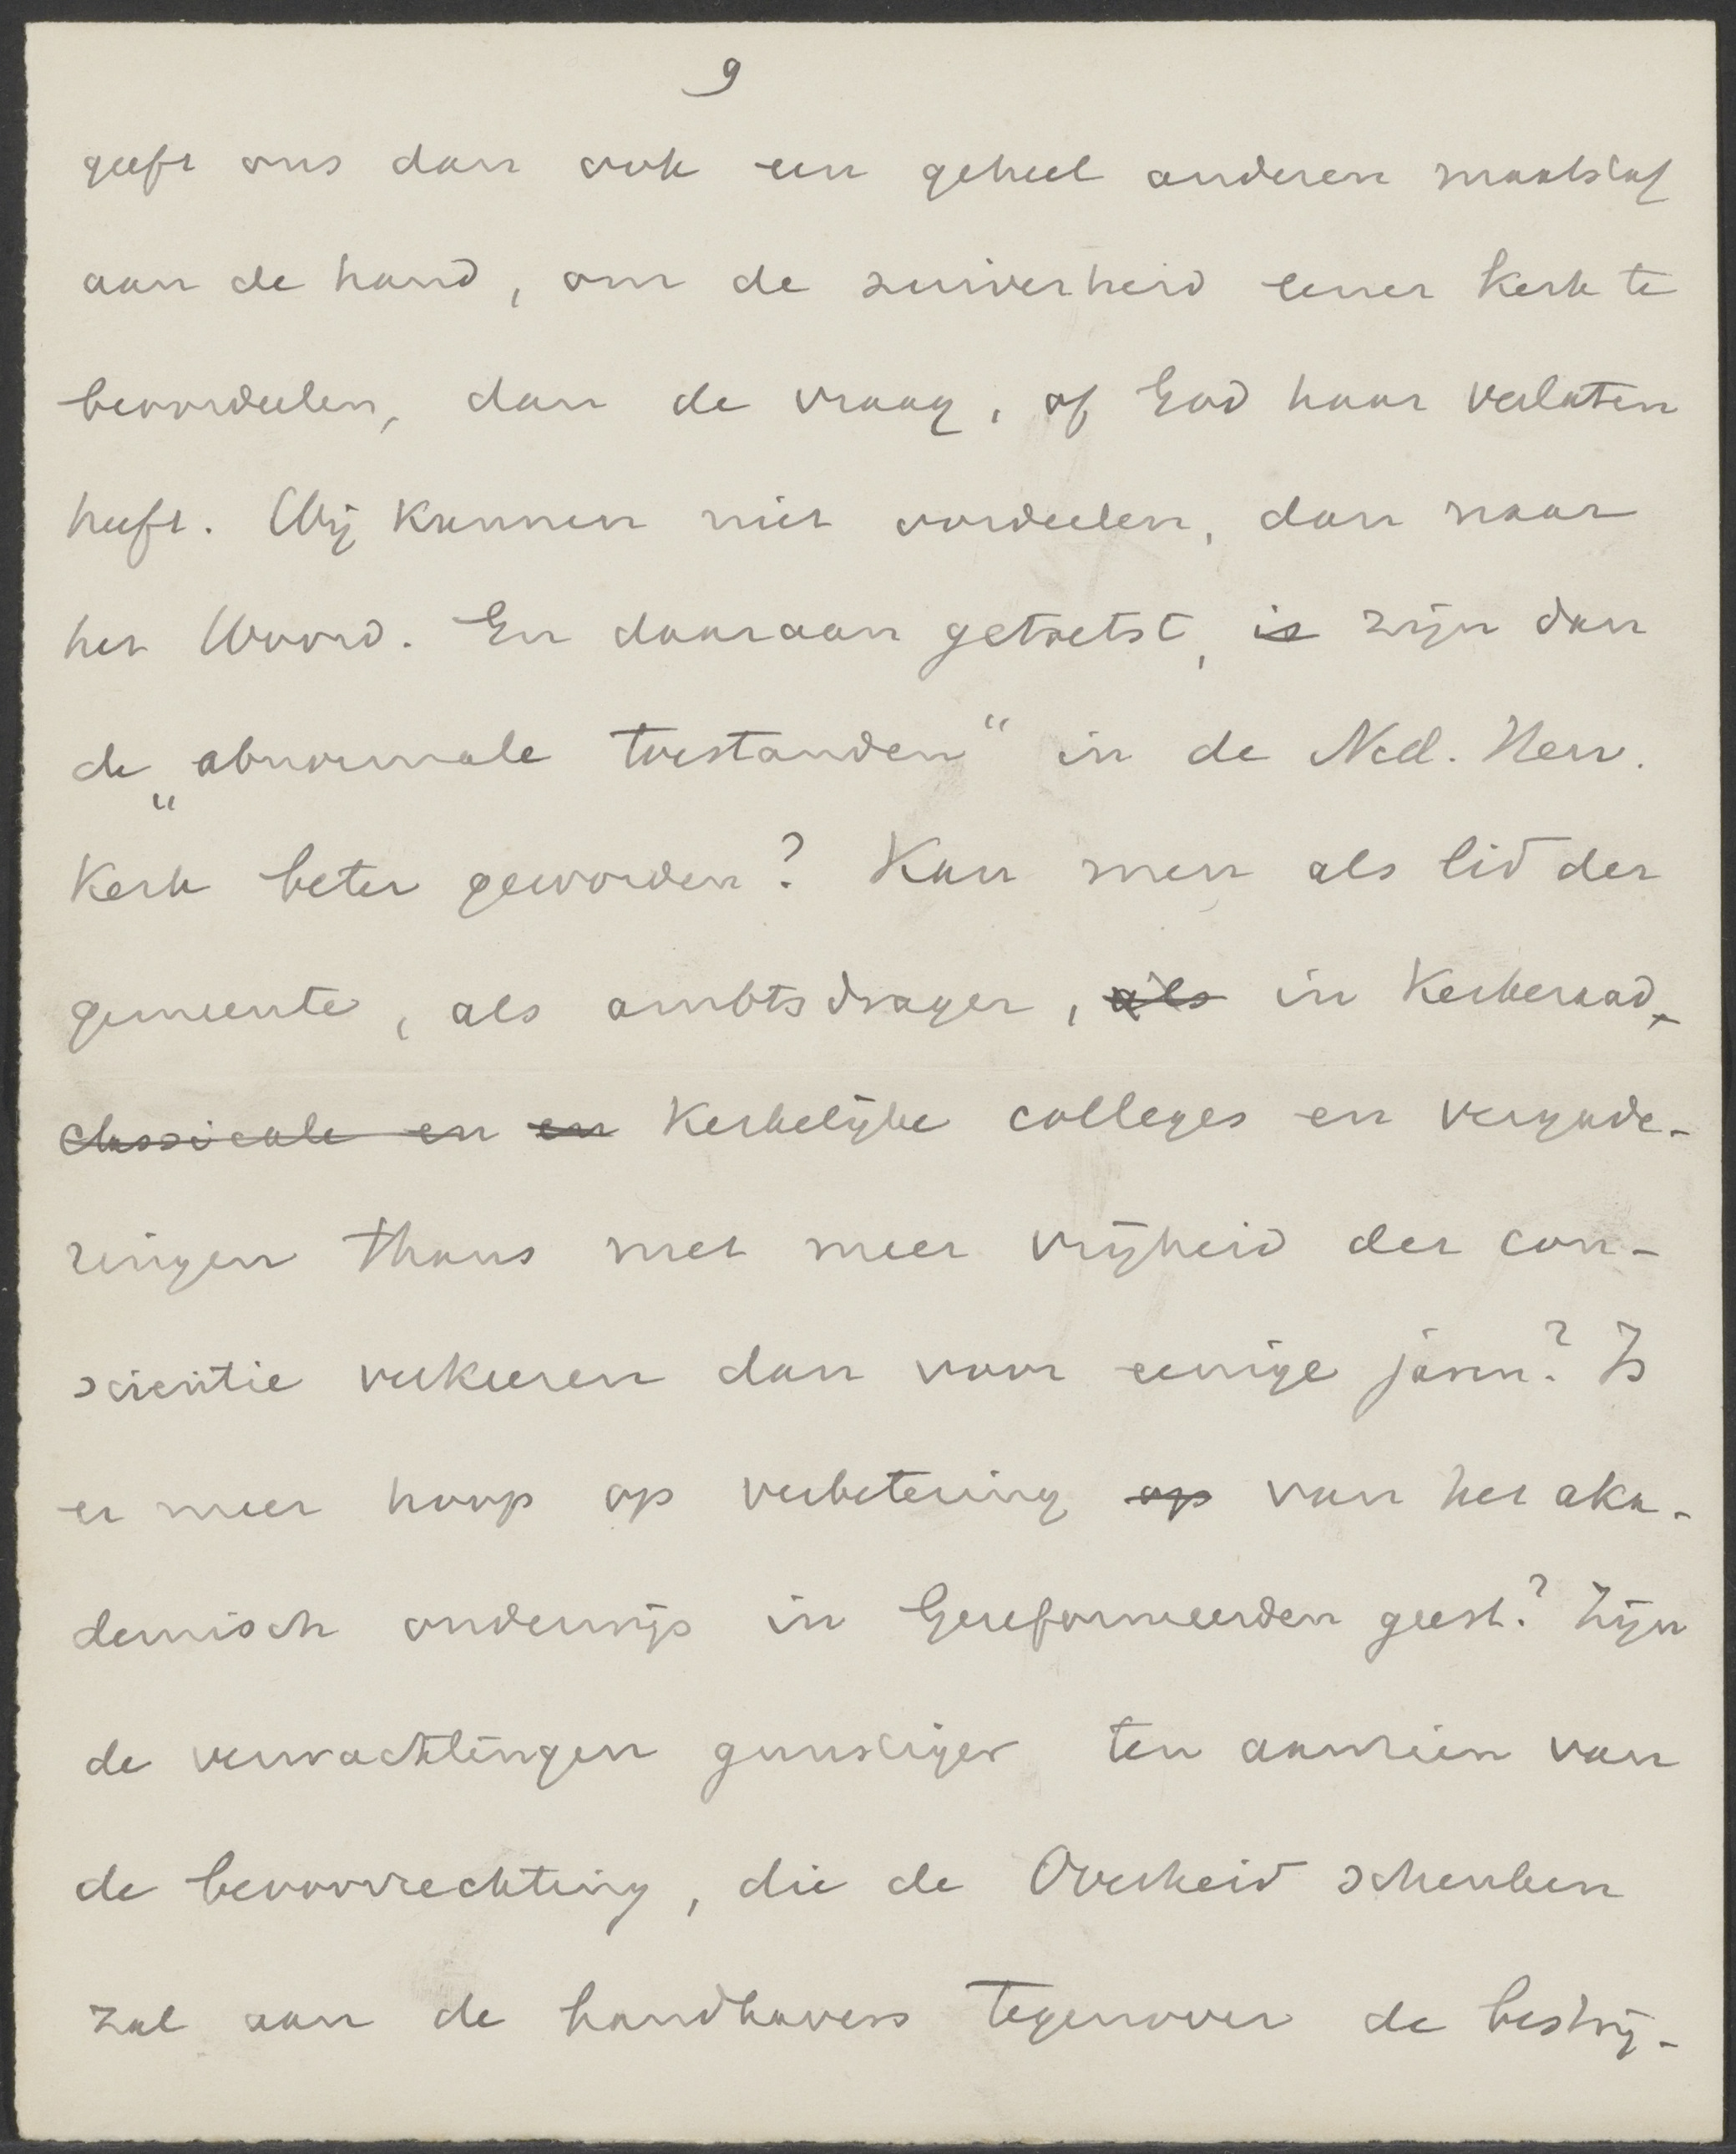 9
geeft ons dan ook een geheel anderen maatstaf
aan de hand, om de zuiverheid eener Kerk te
beoordeelen, dan de vraag, of God haar verlaten
heeft. Wij kunnen niet oordeelen, dan naar
het Woord. En daaraan getoetst, is zijn dan
de „abnormale toestanden“ in de Ned. Herv.
Kerk beter geworden? Kan men als lid der
gemeente, als ambtsdrager, als in Kerkeraad,
classicale en en Kerkelijke colleges en vergade-
ringen thans met meer vrijheid der con-
scientie verkeeren dan voor eenige jaren? Is
er meer hoop op verbetering op van het aka-
demisch onderwijs in Gereformeerden geest? Zijn
de verwachtingen gunstiger ten aanzien van
de bevoorrechting, die de Overheid schenken
zal aan de handhavers tegenover de bestrij-